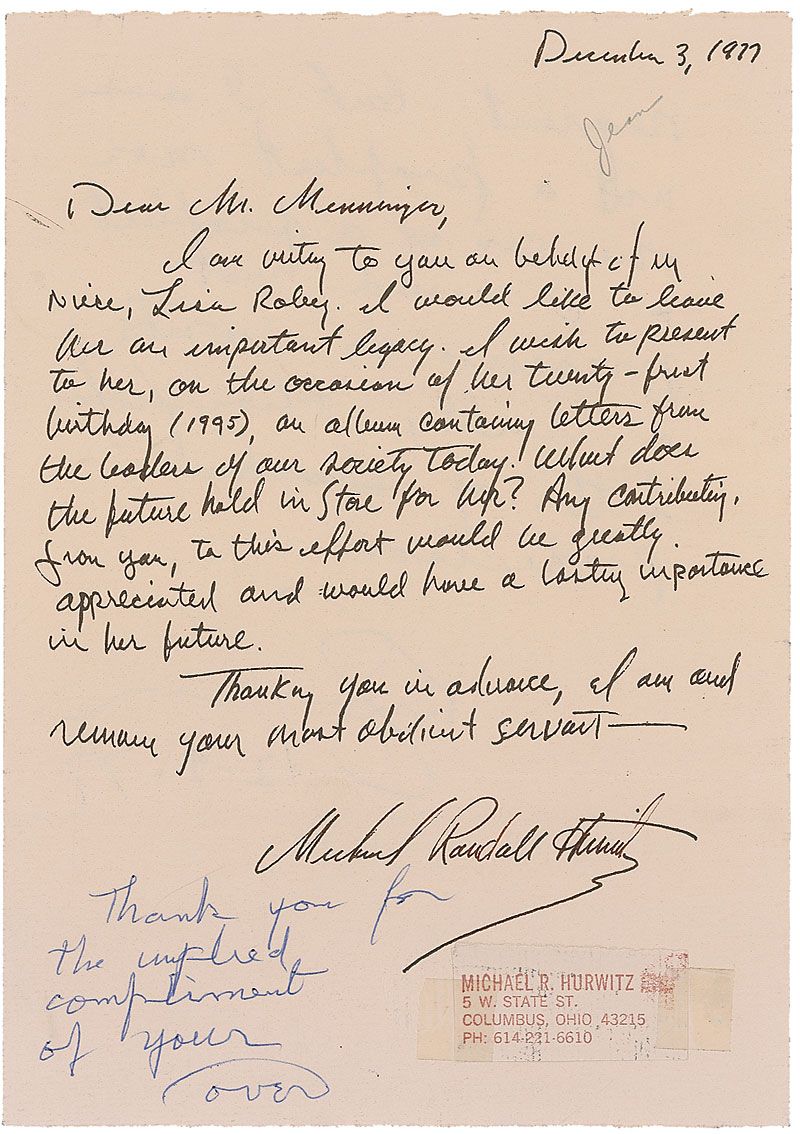 December 3, 1977
Jean
Dear Mr. Menninger,
I am writing to you on behalf of my
niece, Lisa Robey. I would like to leave
her an important legacy. I wish to present
to her, on the occasion of her twenty-first
birthday (1995), an album containing letters from
the leaders of our society today. What does
the future hold in store for her? Any contribution,
from you, to this effort would be greatly
appreciated and would have a lasting importance
in her future.
Thanking you in advance, I am and
remain your most obedient servant—
Michael Randall Hurwitz
Thank you for
the implied
compliment
of your
over
MICHAEL R. HURWITZ
5 W. STATE ST.
COLUMBUS, OHIO 43215
PH: 614-221-6610